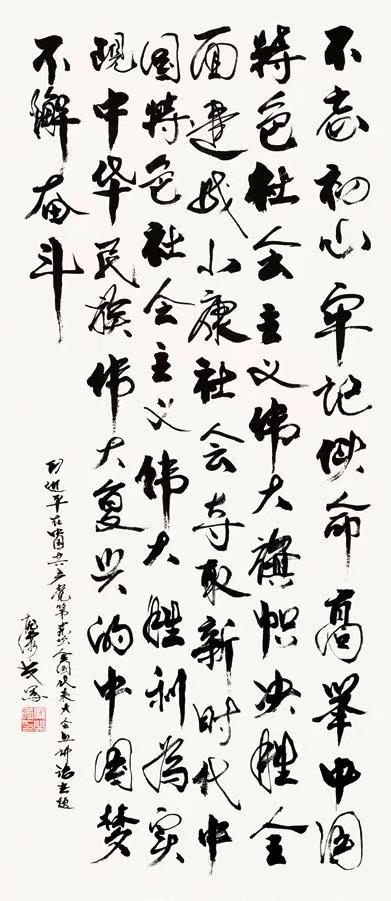 不忘初心牢记使命高举中国
特色社会主义伟大旗帜决胜全
面建成小康社会夺取新时代中
国特色社会主义伟大胜利为实
现中华民族伟大复兴的中国梦
不懈奋斗
习近平在中国共产党第十九次全国代表大会上讲话主题